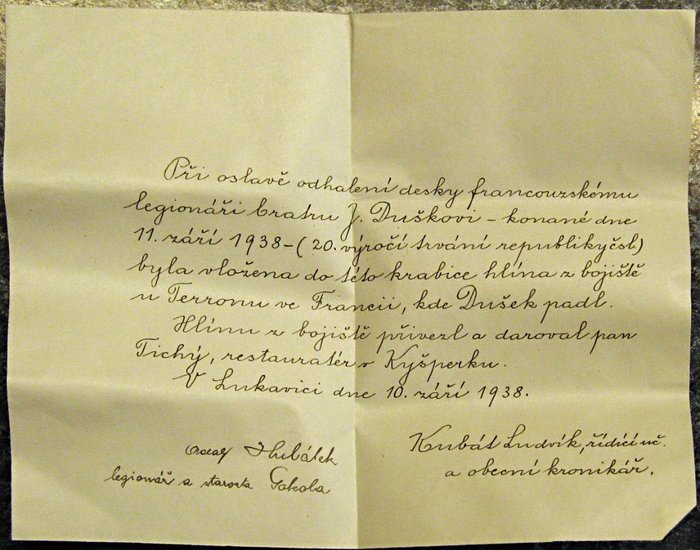 Při oslavě odhalení desky francouzskému
legionáři bratru J. Duškovi – konané dne
11. září 1938 – ( 20. výročí trvání republiky čsl)
byla vložena do této krabice hlína z bojiště
u Terronu ve Francii, kde Dušek padl.
Hlínu z bojiště přivezl a daroval pan
Tichý, restauratér v Kyšperku.
V Lukavici dne 10. září 1938.
Hubálek
legionář a starosta Sokola
Kubát Ludvík, řídící uč.
a obecní kronikář.